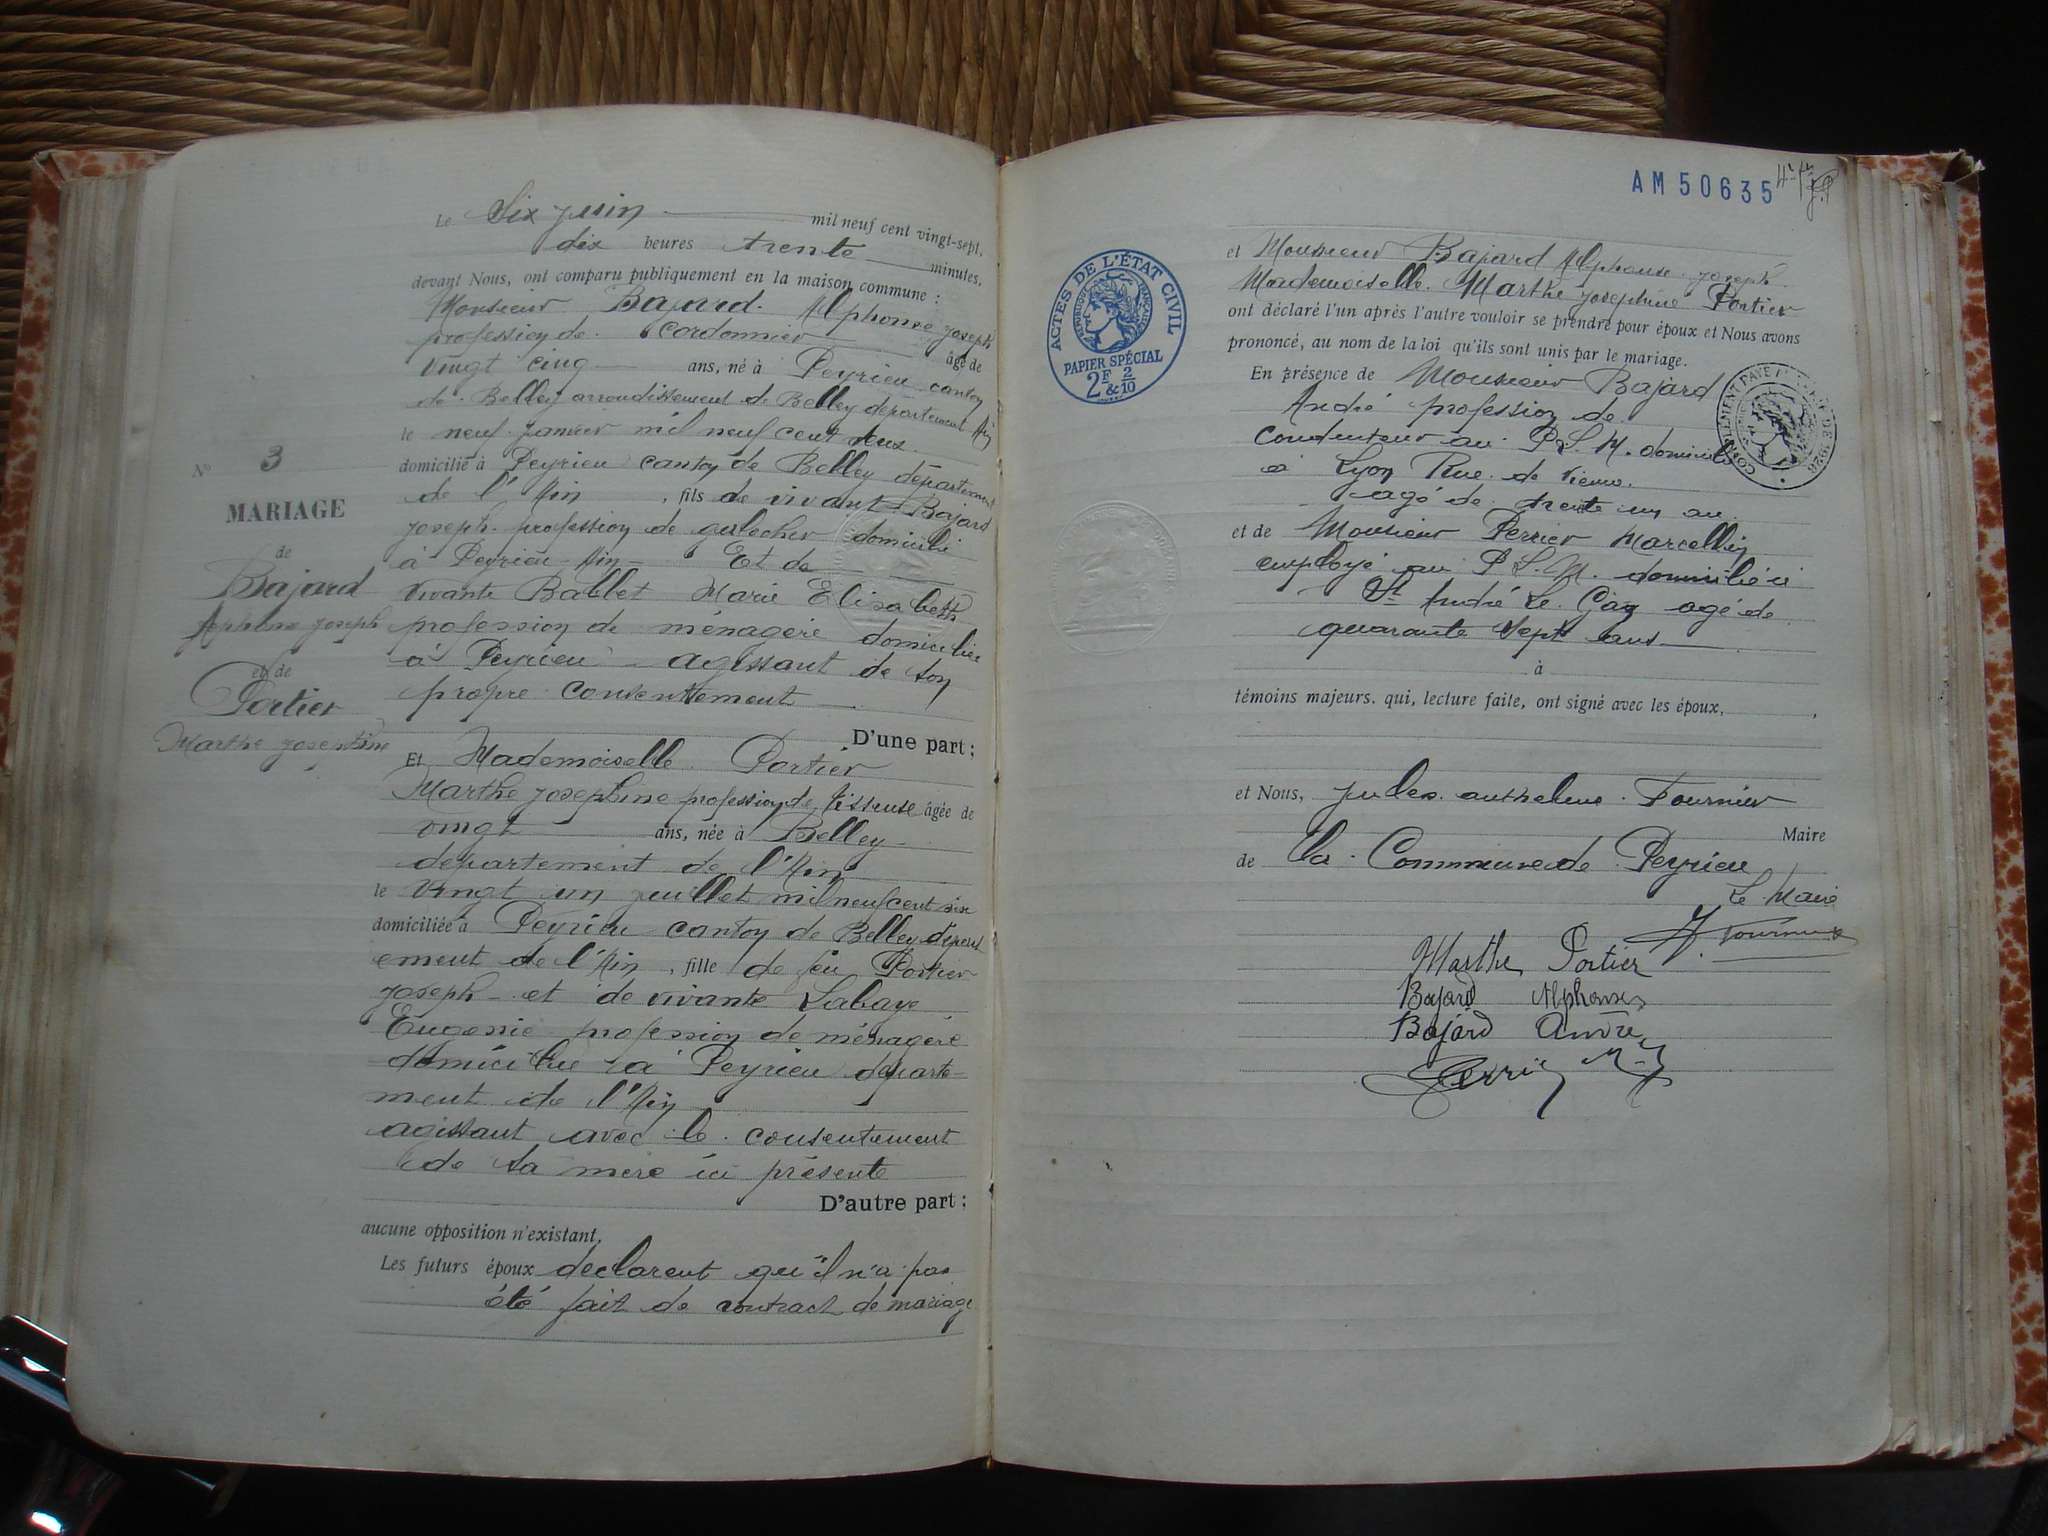 Le Six juin mil neuf cent vingt-sept,
dix heures trente minutes,
devant Nous, ont comparu publiquement en la maison commune :
Monsieur Bajard Alphonse joseph
profession de cordonnier âgé de
vingt cinq ans, né à Peyrieu canton
de Belley arrondissement de Belley département Ain
le neuf janvier mil neuf cent deux
domicilié à Peyrieu canton de Belley département
de l'Ain, fils de vivant Bajard
joseph profession de domicilié
à Peyrieu Ain Et de
vivante Ballet Marie Elisabeth
profession de ménagère domiciliée
à Peyrieu agissant de son
propre consentement
D'une part ;
No 3
MARIAGE
de
Bajard
Alphonse joseph
et de
Portier
Marthe josephine
Et Mademoiselle Portier
Marthe josephine profession de tisseuse âgée de
vingt ans, née à Belley
departement de l'Ain
le vingt un juillet mil neuf cent six
domiciliée à Peyrieu canton de Belley départ
ement de l'Ain, fille de feu Portier
joseph et de vivante Labaye
Eugenie profession de ménagère
domiciliée à Peyrieu départe-
ment de l'Ain
agissant avec le consentement
de sa mère ici présente
D'autre part ;
aucune opposition n'existant,
Les futurs époux declarent qu'il n'a pas
été fait de contract de mariage
AM50635
ACTES DE L'ÉTAT CIVIL
RÉPUBLIQUE FRANÇAISE
PAPIER SPÉCIAL
2F & 2/10
et Monsieur Bajard Alphonse joseph
Mademoiselle Marthe josephine Portier
ont déclaré l'un après l'autre vouloir se prendre pour époux et Nous avons
prononcé, au nom de la loi qu'ils sont unis par le mariage.
En présence de Monsieur Bajard
André profession de
conducteur au P.L.M. domicilié
à Lyon Rue de Vienne
agé de trente un an
et de Monsieur Perrier Marcellin
employé au P.L.M. domicilié à
St André Le Gaz agé de
quarante sept ans
à
témoins majeurs. qui, lecture faite, ont signé avec les époux,
et Nous, jules anthelme Fournier
Maire
de la Commune de Peyrieu
Le Maire
J. Fournier
Marthe Portier
Bajard Alphonse
Bajard André
Perrier M